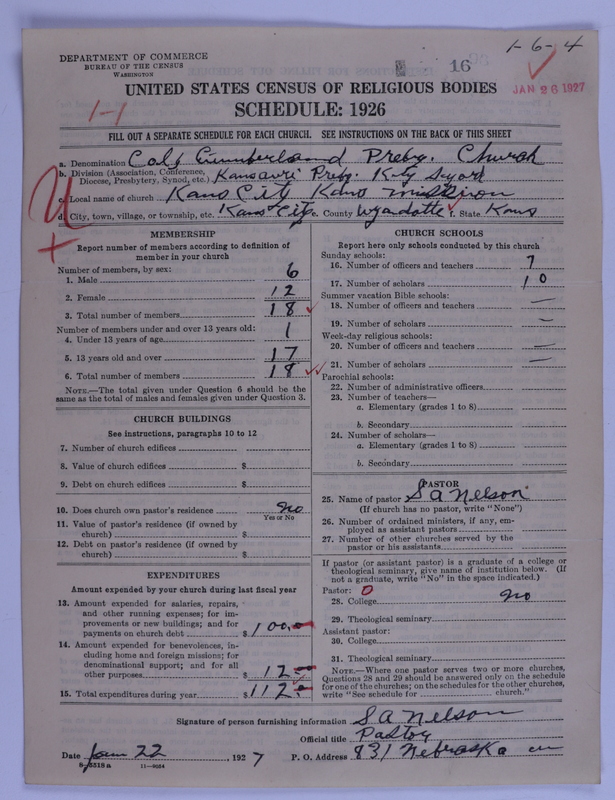 1-6-4
DEPARTMENT OF COMMERCE
BUREAU OF THE CENSUS
WASHINGTON
16
JAN 26 1927
1-1
UNITED STATES CENSUS OF RELIGIOUS BODIES
SCHEDULE: 1926
FILL OUT A SEPARATE SCHEDULE FOR EACH CHURCH. SEE INSTRUCTIONS ON THE BACK OF THIS SHEET
a. Denomination Col Cumberland Presby. Church
b. Division (Association, Conference, Diocese, Presbytery, Synod, etc.) Presby.
c. Local name of church Kans City Kans mission
d. City, town, village, or township, etc. Kans City e. County Wyandotte f. State Kans
MEMBERSHIP
Report number of members according to definition of
member in your church
Number of members, by sex:
1. Male 6
2. Female 12
3. Total number of members 18
Number of members under and over 13 years old:
4. Under 13 years of age 1
5. 13 years old and over 17
6. Total number of members 18
NOTE.—The total given under Question 6 should be the
same as the total of males and females given under Question 3.
CHURCH BUILDINGS
See instructions, paragraphs 10 to 12
7. Number of church edifices
8. Value of church edifices $
9. Debt on church edifices $
10. Does church own pastor's residence no
Yes or No
11. Value of pastor's residence (if owned by
church) $
12. Debt on pastor's residence (if owned by
church) $
EXPENDITURES
Amount expended by your church during last fiscal year
13. Amount expended for salaries, repairs,
and other running expenses; for im-
provements or new buildings; and for
payments on church debt $ 100.-
14. Amount expended for benevolences, in-
cluding home and foreign missions; for
denominational support; and for all
other purposes $ 12-
15. Total expenditures during year $ 112-
CHURCH SCHOOLS
Report here only schools conducted by this church
Sunday schools:
16. Number of officers and teachers 7
17. Number of scholars 10
Summer vacation Bible schools:
18. Number of officers and teachers —
19. Number of scholars —
Week-day religious schools:
20. Number of officers and teachers —
21. Number of scholars —
Parochial schools:
22. Number of administrative officers
23. Number of teachers—
a. Elementary (grades 1 to 8)
b. Secondary
24. Number of scholars—
a. Elementary (grades 1 to 8)
b. Secondary
PASTOR
25. Name of pastor S A Nelson
(If church has no pastor, write "None")
26. Number of ordained ministers, if any, em-
ployed as assistant pastors
27. Number of other churches served by the
pastor or his assistants
If pastor (or assistant pastor) is a graduate of a college or
theological seminary, give name of institution below. (If
not a graduate, write "No" in the space indicated.)
Pastor: 0
28. College no
29. Theological seminary
Assistant pastor:
30. College
31. Theological seminary
NOTE.—Where one pastor serves two or more churches,
Questions 28 and 29 should be answered only on the schedule
for one of the churches; on the schedules for the other churches,
write "See schedule for church."
Signature of person furnishing information S A Nelson
Official title Pastor
Date Jan 22, 1927 P. O. Address 831 Nebraska
8-5518a 11-9054